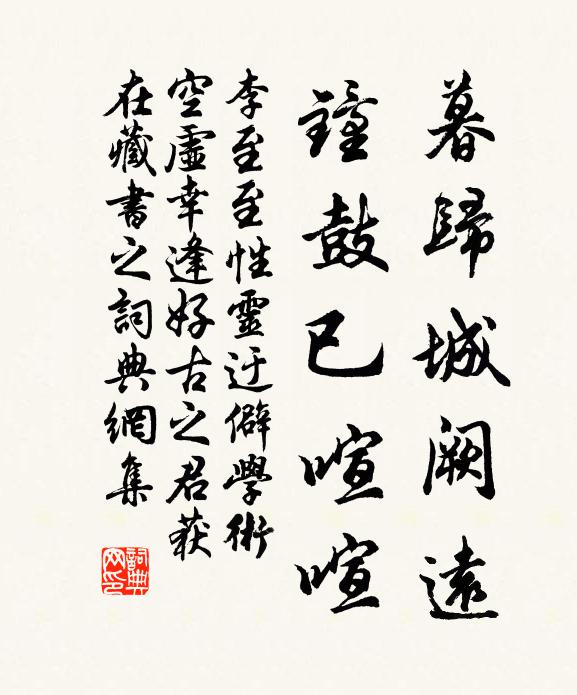 暮歸城闕遠
鐘鼓已喧喧
李至至性靈迂僻學術
空虛幸逢好古之君获
在藏書之詞典網集
詞典網印